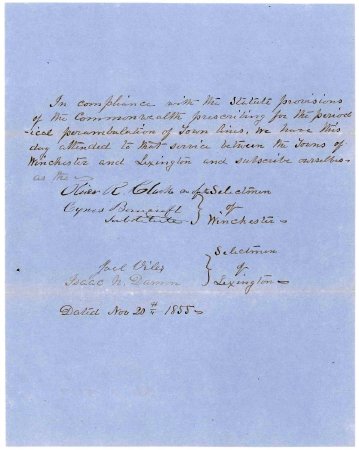 In compliance with the Statute Provisions
of the Commonwealth prescribing for the period
ical perambulation of Town lines, we have this
day attended to that service between the Towns of
Winchester and Lexington and subscribe ourselves
as the
Oliver R. Clark Selectmen
Cyrus Bancroft of
Substitute Winchester
Joel Viles Selectmen
Isaac N. Damon of
Lexington
Dated Nov 20th 1855